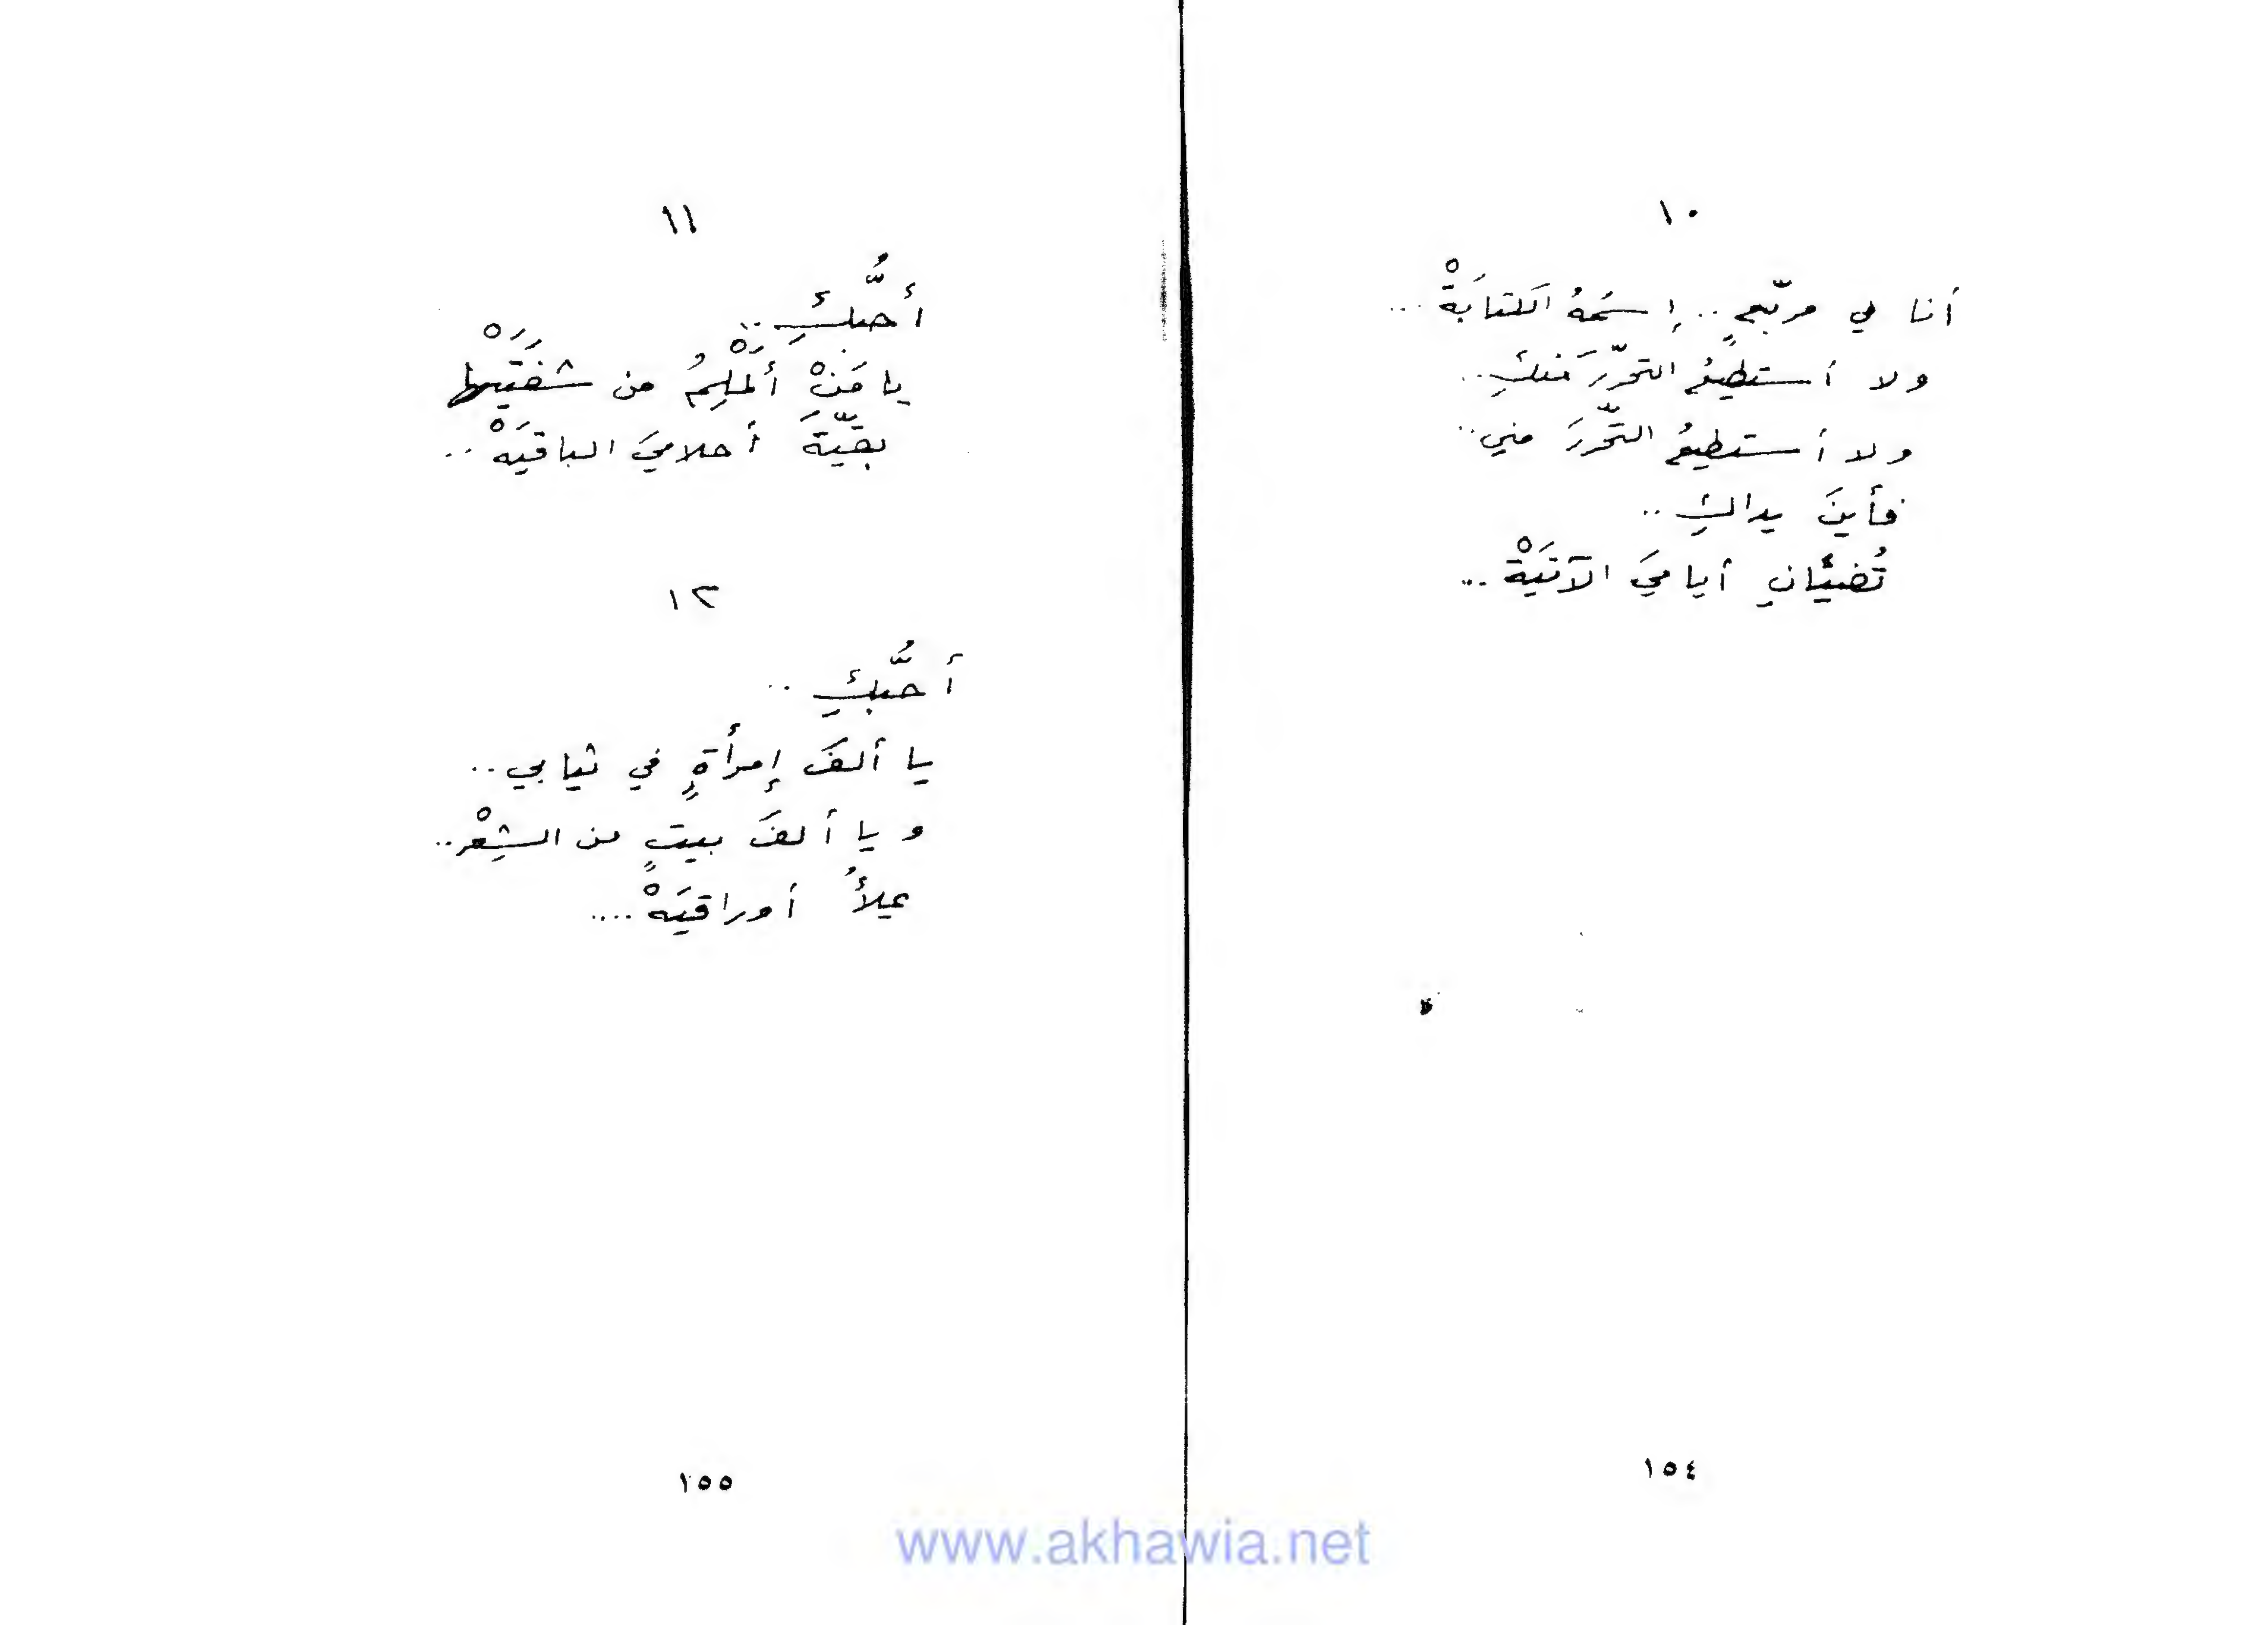 ١٠
أنا في مربّعٍ .. إسمُهُ الكتابَةْ ...
ولا أستطيعُ التحرّرَ منكِ ..
ولا أستطيعُ التحّررَ مني ..
فأينَ يداكِ ..
تُضيئانِ أياميَ الآتيَةْ ...
١٥٤
١١
أحبُّكِ ..
يا مَنْ أُلملِمُ من شفَتَيْها
بقيّةَ أحلاميَ الباقيَهْ ..
١٢
أحبُّكِ ..
يا ألفَ إمرأةٍ في ثيابي ..
ويا ألفَ بيتٍ من الشِعْرِ ..
يملأُ أوراقيَهْ ....
١٥٥
www.akhawia.net